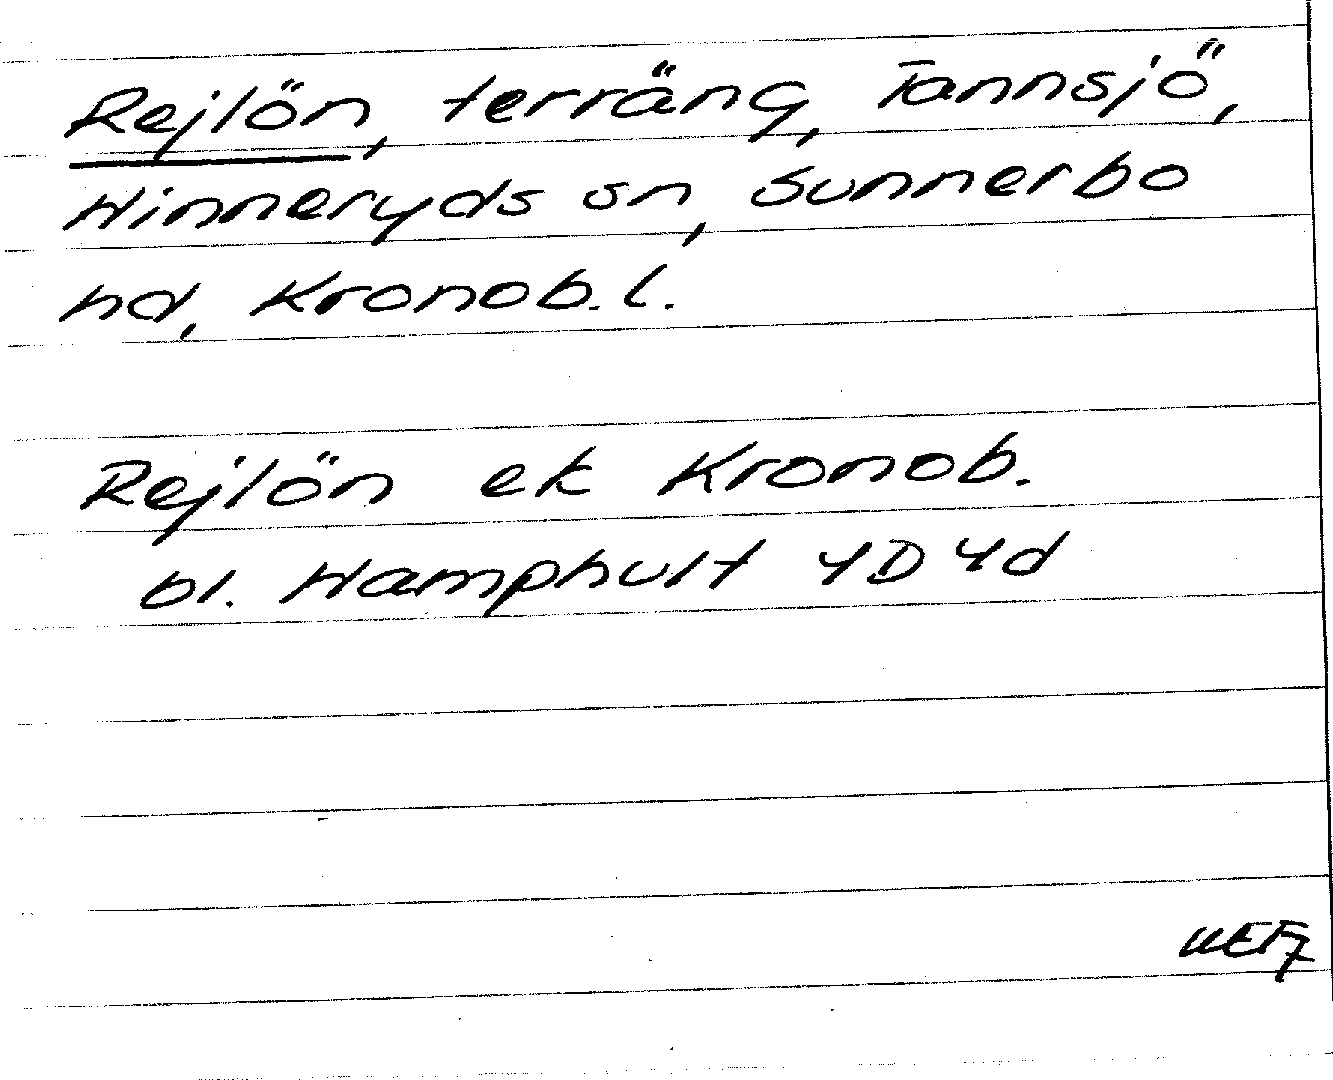 Rejlön, terräng, Tannsjö,
Hinneryds sn, Sunnerbo
hd, Kronob. l.
Rejlön ek Kronob.
bl. Hamphult 4D4d